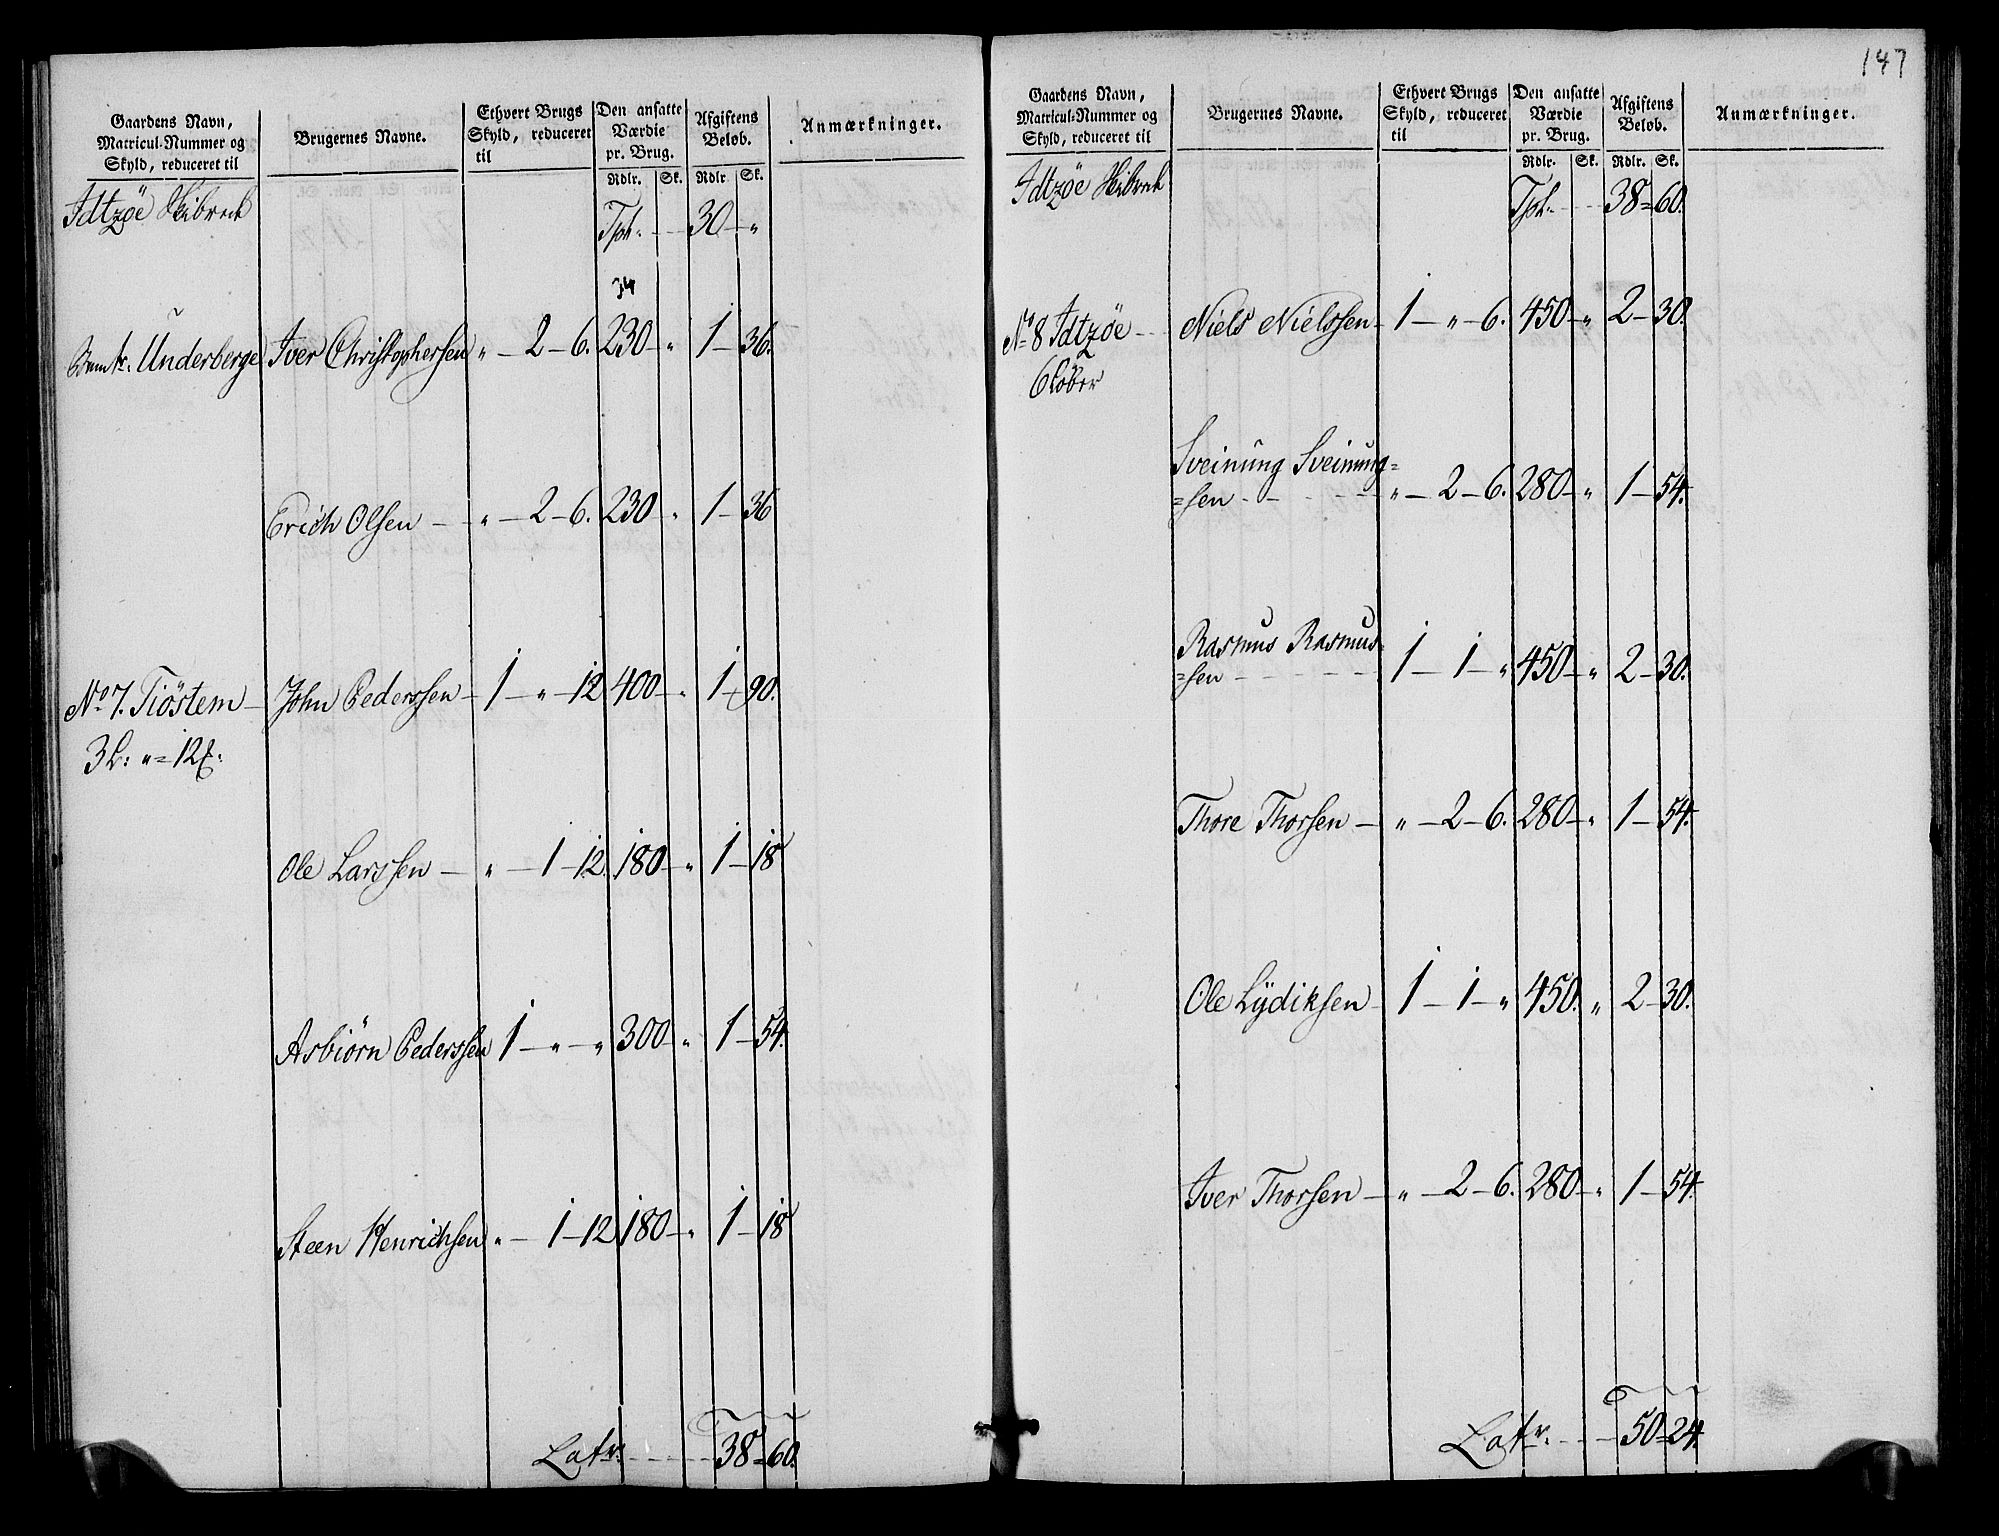 147
Gaardens Navn, Matricul-Nummer og Skyld, reduceret til | Brugernes Navne. | Ethvert Brugs Skyld, reduceret til | Den ansatte Værdie pr. Brug. | Afgiftens Beløb. | Anmærkninger.
Rdlr. Sk. Rdlr. Sk.
Idtzøe Skibrech Tpt. 30 - "
34
Underberge Iver Christophersen " - 2 - 6. 230 - " 1 - 36.
Erich Olsen - " - 2 - 6. 230 - " 1 - 36
No 7. Tiöstem - John Pederssen - 1 - " - 12 400 - " 1 - 90.
3 L: " = 12
Ole Larssen - " - 1 - 12. 180 - " 1 - 18
Asbiörn Pederssen 1 - " - " 300 - " 1 - 54.
Steen Henrichsen " - 1 - 12 180 - " 1 - 18
Latr. 38 = 60.
Gaardens Navn, Matricul-Nummer og Skyld, reduceret til | Brugernes Navne. | Ethvert Brugs Skyld, reduceret til | Den ansatte Værdie pr. Brug. | Afgiftens Beløb. | Anmærkninger.
Rdlr. Sk. Rdlr. Sk.
Idtzøe Skibrech Tpt. 38 = 60.
No 8 Idtzøe - Niels Nielssen - 1 - " - 6. 450 - " 2 - 30.
6 Løber
Sveinung Sveinung=
=sen - " - 2 - 6. 280 - " 1 - 54.
Rasmus Rasmus=
=sen - 1 - 1 - " 450 - " 2 - 30.
Thore Thorsen - " - 2 - 6. 280 - " 1 - 54.
Ole Lÿdiksen - 1 - 1 - " 450. " 2 - 30.
Iver Thorsen - " - 2 - 6. 280 - " 1 - 54.
Latr. 50 = 24.